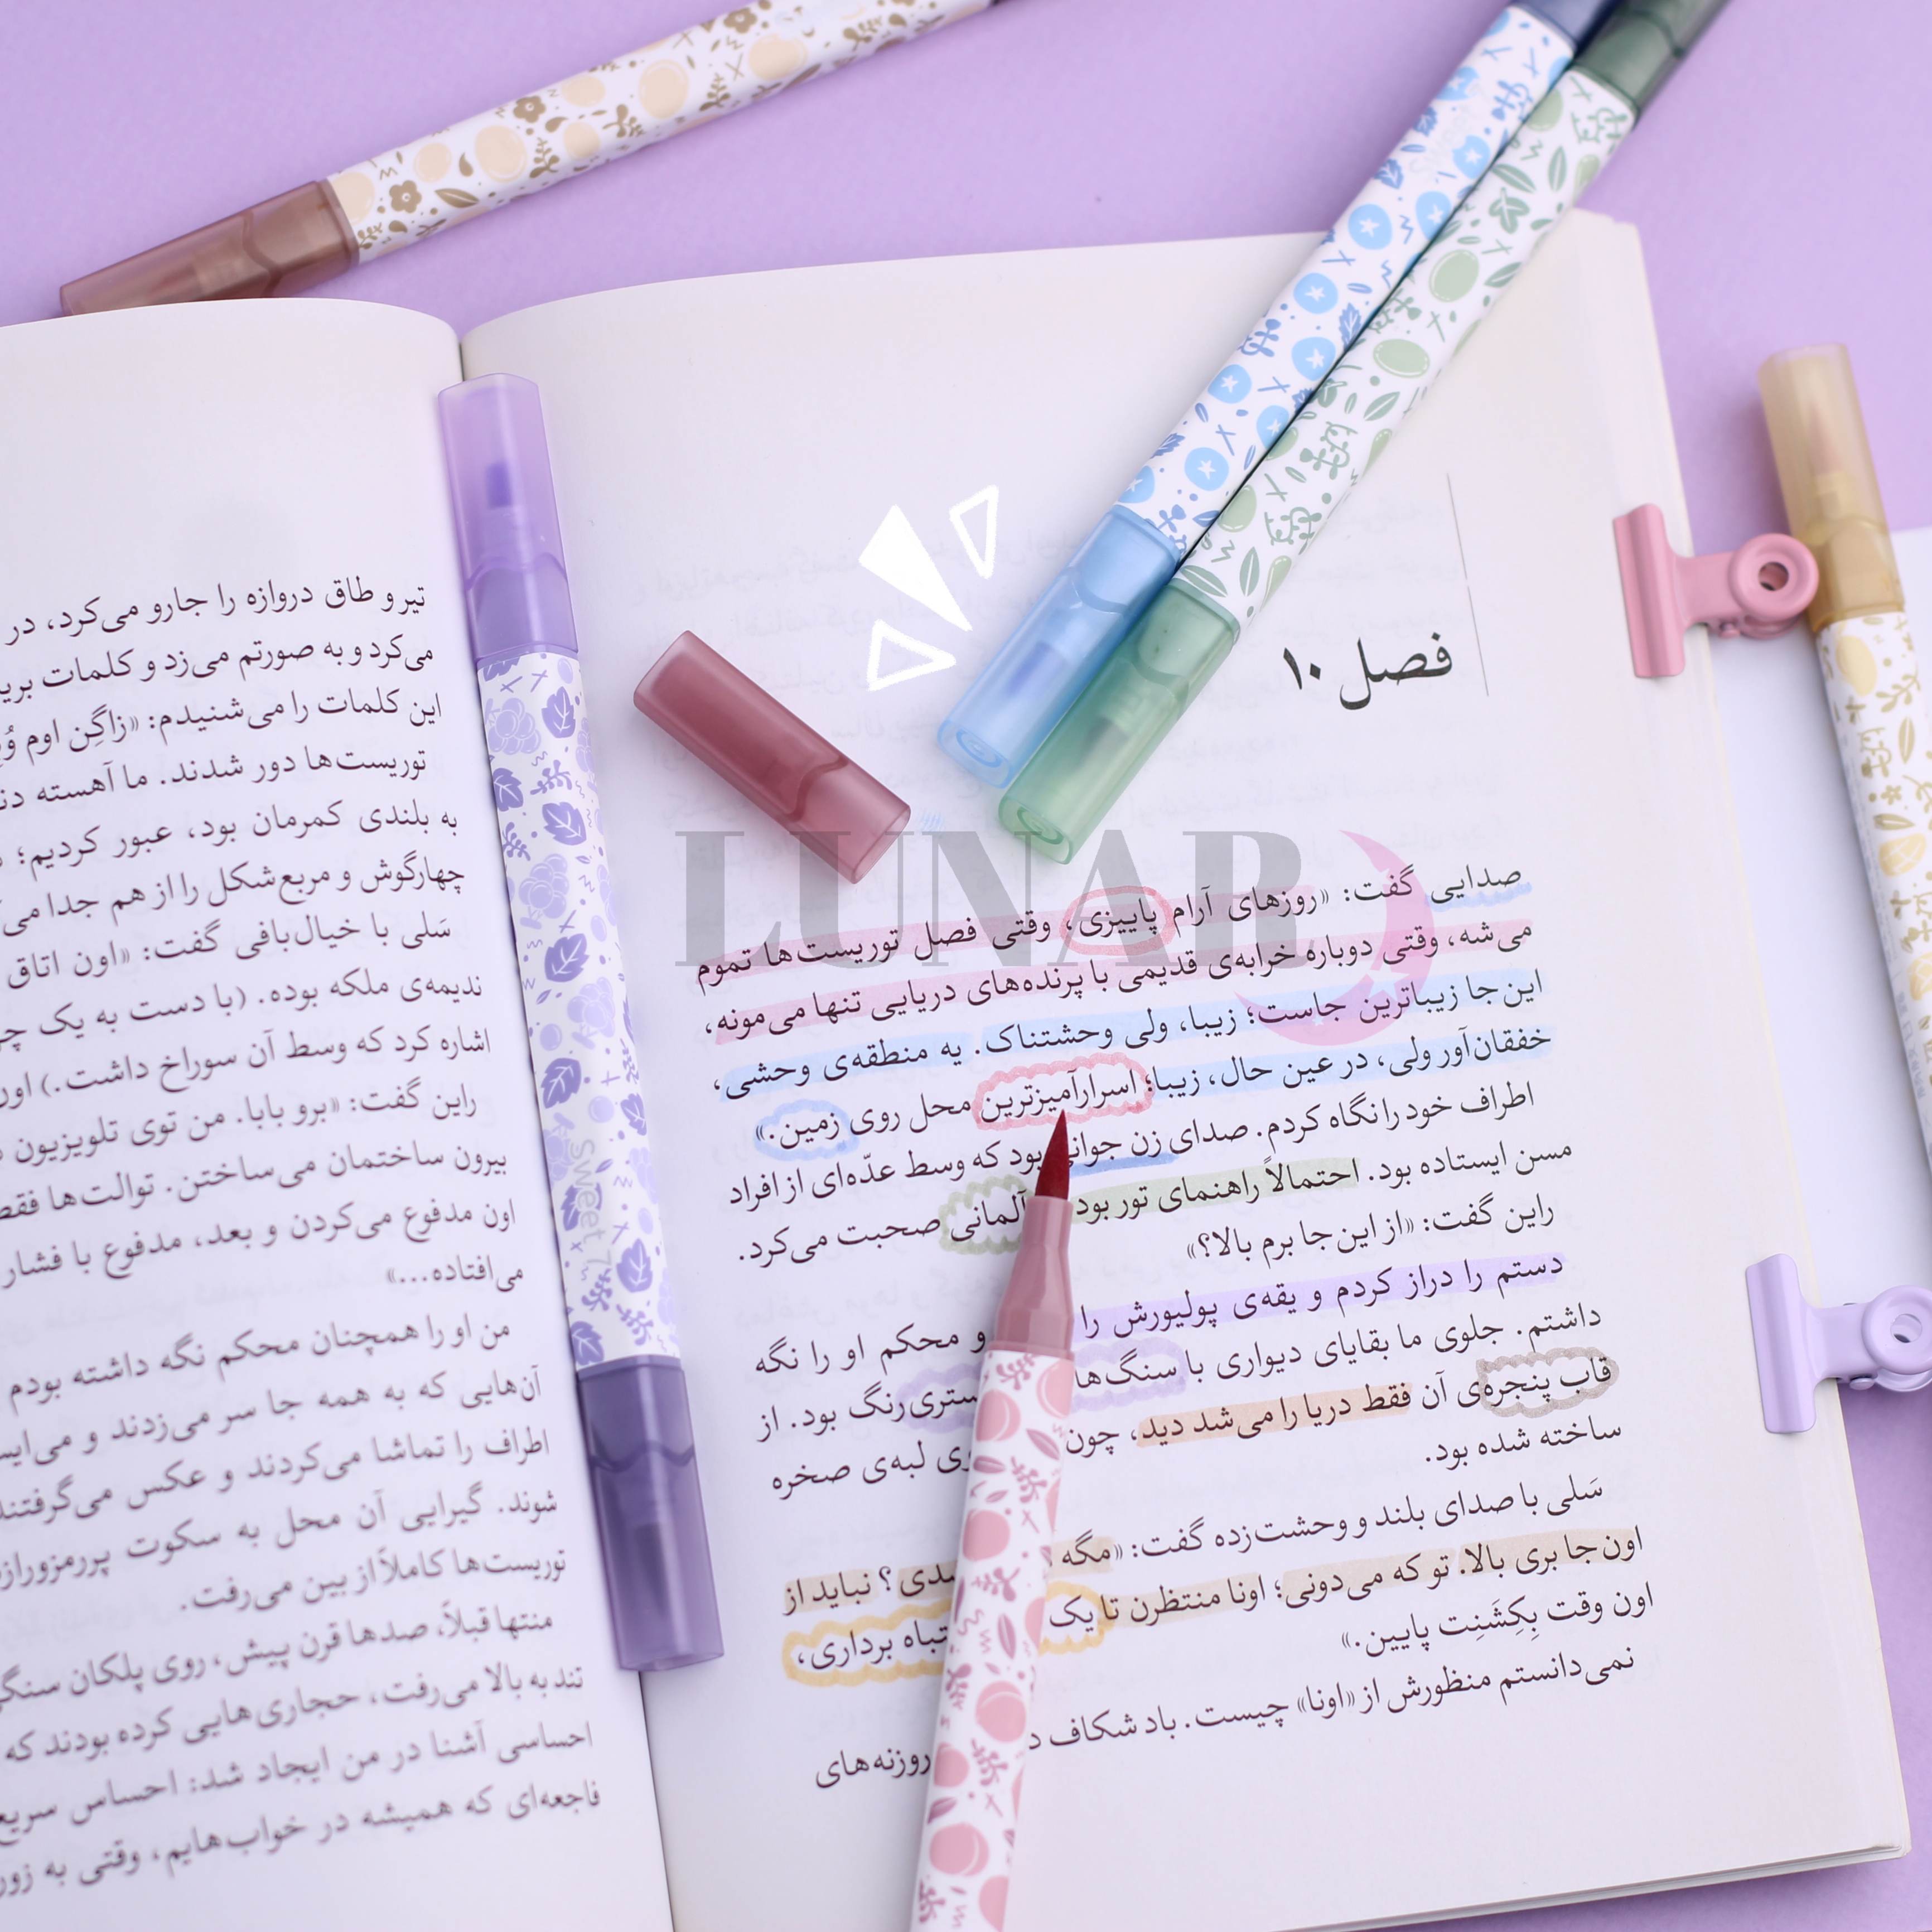 فصل ۱۰
صدایی گفت: «روزهای آرام پاییزی، وقتی فصل توریست‌ها تموم
می‌شه، وقتی دوباره خرابه‌ی قدیمی با پرنده‌های دریایی تنها می‌مونه،
این‌جا زیباترین جاست؛ زیبا، ولی وحشتناک. یه منطقه‌ی وحشی،
خفقان‌آور ولی، در عین حال، زیبا؛ اسرارآمیزترین محل روی زمین.»
اطراف خود را نگاه کردم. صدای زن جوانی بود که وسط عدّه‌ای از افراد
مسن ایستاده بود. احتمالاً راهنمای تور بود آلمانی صحبت می‌کرد.
راین گفت: «از این‌جا برم بالا؟»
دستم را دراز کردم و یقه‌ی پولیورش را و محکم او را نگه
داشتم. جلوی ما بقایای دیواری با سنگ‌ها رنگ بود. از
قاب پنجره‌ی آن فقط دریا را می‌شد دید، چون لبه‌ی صخره
ساخته شده بود.
سَلی با صدای بلند و وحشت‌زده گفت: «مگه ؟ نباید از
اون‌جا بری بالا. تو که می‌دونی؛ اونا منتظرن تا یک برداری،
اون وقت بِکِشَنِت پایین.»
نمی‌دانستم منظورش از «اونا» چیست. باد شکاف روزنه‌های
تیر و طاق دروازه را جارو می‌کرد، در
می‌کرد و به صورتم می‌زد و کلمات
این کلمات را می‌شنیدم: «زاگِن اوم
توریست‌ها دور شدند. ما آهسته
به بلندی کمرمان بود، عبور کردیم؛
چهارگوش و مربع‌شکل را از هم جدا
سَلی با خیال‌بافی گفت: «اون اتاق
ندیمه‌ی ملکه بوده. (با دست به یک
اشاره کرد که وسط آن سوراخ داشت.) اون
راین گفت: «برو بابا. من توی تلویزیون
بیرون ساختمان می‌ساختن. توالت‌ها فقط
اون مدفوع می‌کردن و بعد، مدفوع با فشار
می‌افتاده...»
من او را همچنان محکم نگه داشته بودم
آن‌هایی که به همه جا سر می‌زدند و
اطراف را تماشا می‌کردند و عکس می‌گرفتند
شوند. گیرایی آن محل به سکوت
توریست‌ها کاملاً از بین می‌رفت.
منتها قبلاً، صدها قرن پیش، روی پلکان
تند به بالا می‌رفت، حجاری‌هایی کرده بودند که
احساسی آشنا در من ایجاد شد: احساس
فاجعه‌ای که همیشه در خواب‌هایم، وقتی به
sweet 7
LUNAR